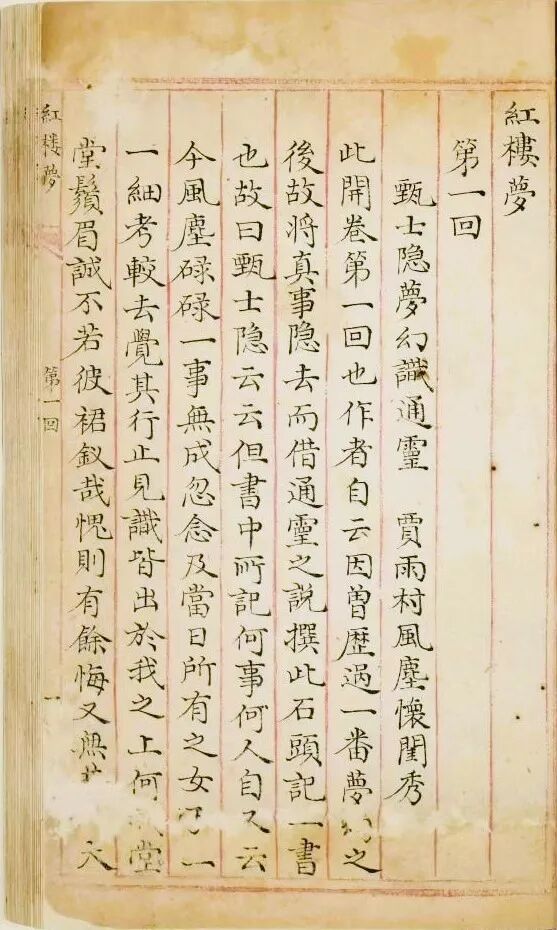 紅樓夢
第一回
甄士隐夢幻識通靈　賈雨村風塵懷閨秀
此開卷第一回也作者自云因曽歷過一番夢幻之
後故将真事隐去而借通靈之説撰此石頭記一書
也故曰甄士隐云云但書中所記何事何人自又云
今風塵碌碌一事無成忽念及當日所有之女一
一細考較去覺其行止見識皆出於我之上何堂
堂鬚眉誠不若彼裙釵哉愧則有餘悔又無大
紅樓夢
第一回
一